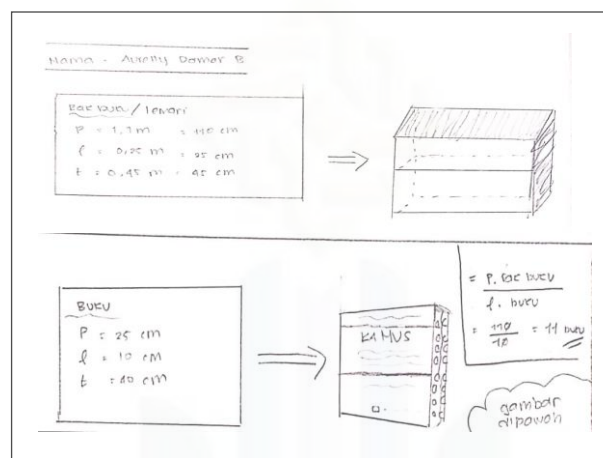 Nama - Aurelly Damar B
Rak buku / lemari
P = 1,1 m = 110 cm
l = 0,25 m = 25 cm
t = 0,45 m = 45 cm
BUKU
P = 25 cm
l = 10 cm
t = 40 cm
KAMUS
= P. rak buku
l. buku
= 110 / 10 = 11 buku
gambar
dipawah